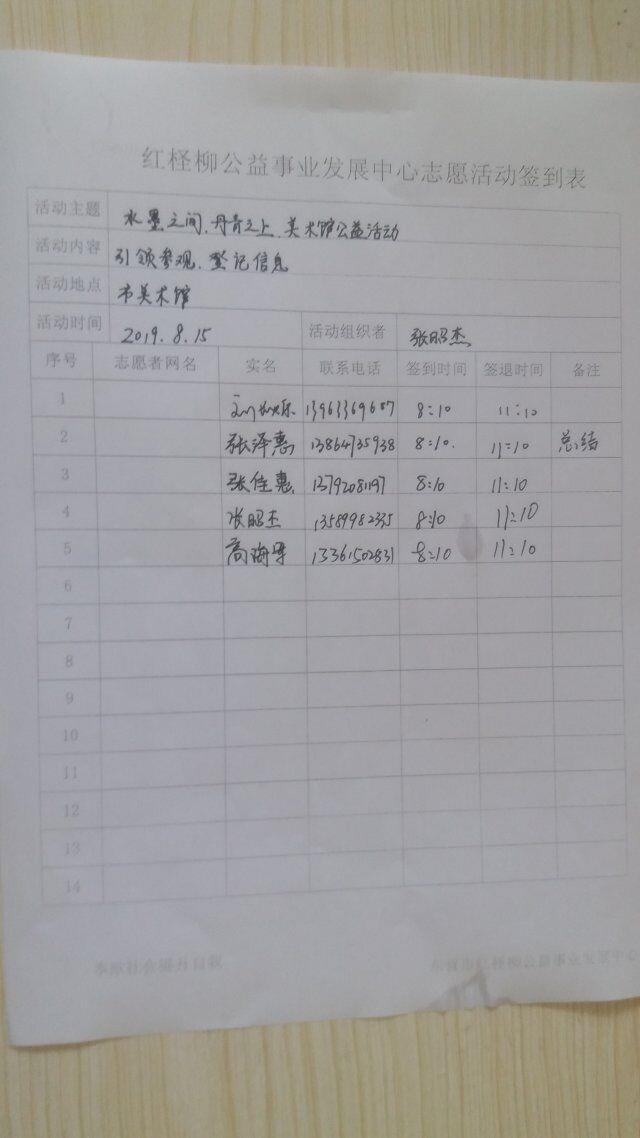 红柽柳公益事业发展中心志愿活动签到表
活动主题 水墨之间，丹青之上，美术馆公益活动
活动内容 引领参观、登记信息
活动地点 市美术馆
活动时间 2019.8.15 活动组织者 张昭杰
序号 志愿者网名 实名 联系电话 签到时间 签退时间 备注
1 13963369687 8:10 11:10
2 张泽惠 13864735938 8:10. 11:10 总结
3 张佳惠 13792081197 8:10 11:10
4 张昭杰 13589982335 8:10 11:10
5 13361502831 8:10 11:10
6
7
8
9
10
11
12
13
14
奉献社会提升自我 东营市红柽柳公益事业发展中心